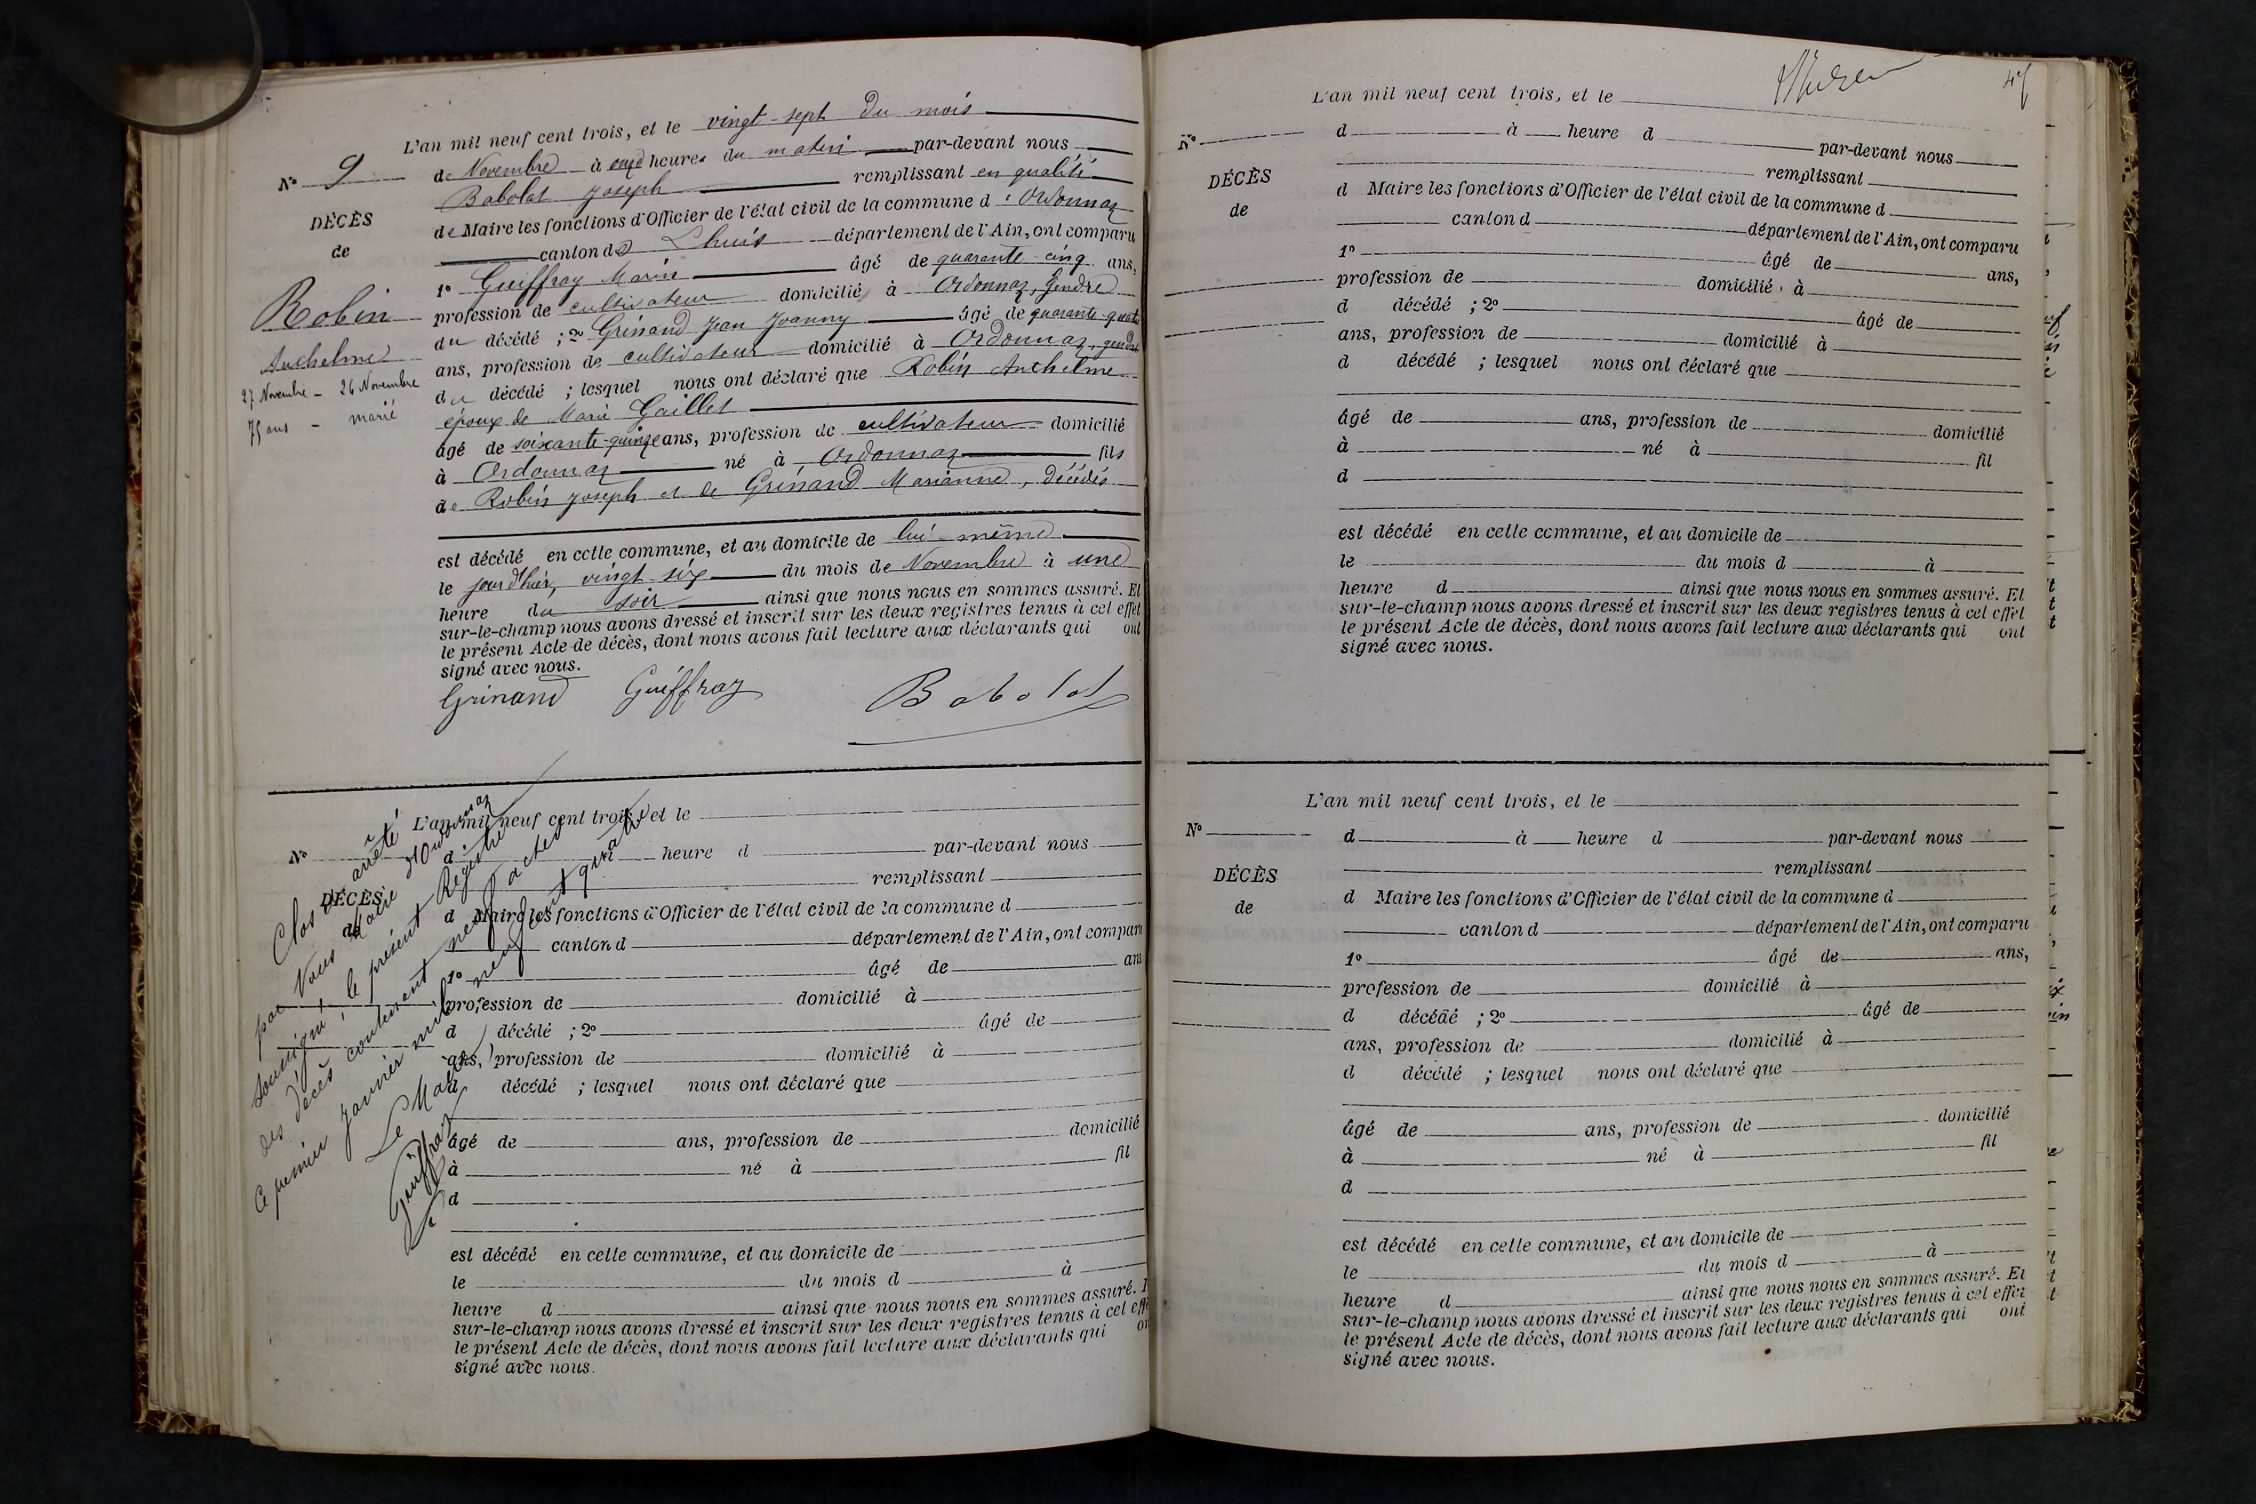 L'an mil neuf cent trois, et le vingt-sept du mois
N° 9
de Novembre à onze heures du matin par-devant nous
Babolat Joseph remplissant en qualité
DÉCÈS
de Maire les fonctions d'Officier de l'état civil de la commune d'Ordonnaz
de
canton de Lhuis département de l'Ain, ont comparu
1° Guiffray Marin âgé de quarante-cinq ans,
Robin
profession de cultivateur domicilié à Ordonnaz, gendre
du décédé ; 2° Grinand Jean Joanny âgé de quarante-quatre
Anthelme
ans, profession de cultivateur domicilié à Ordonnaz, gendre
27 Novembre - 26 Novembre
du décédé ; lesquel nous ont déclaré que Robin Anthelme
75 ans - marié
époux de Marie Gaillet
âgé de soixante-quinze ans, profession de cultivateur domicilié
à Ordonnaz né à Ordonnaz fils
de Robin Joseph et de Grinand Marianne, décédés
est décédé en cette commune, et au domicile de lui-même
le jour d'hier, vingt-six du mois de Novembre à une
heure du soir ainsi que nous nous en sommes assuré. Et
sur-le-champ nous avons dressé et inscrit sur les deux registres tenus à cet effet
le présent Acte de décès, dont nous avons fait lecture aux déclarants qui ont
signé avec nous.
Grinand Guiffray Babolat
L'an mil neuf cent trois, et le
N°
d à heure d par-devant nous
remplissant
DÉCÈS
d Maire les fonctions d'Officier de l'état civil de la commune d
de
canton d département de l'Ain, ont comparu
1° âgé de ans
profession de domicilié à
d décédé ; 2° âgé de
ans, profession de domicilié à
d décédé ; lesquel nous ont déclaré que
âgé de ans, profession de domicilié
à né à fil
d
est décédé en cette commune, et au domicile de
le du mois d à
heure d ainsi que nous nous en sommes assuré.
sur-le-champ nous avons dressé et inscrit sur les deux registres tenus à cet effe
le présent Acte de décès, dont nous avons fait lecture aux déclarants qui on
signé avec nous.
Clos et arrêté
par Nous Maire d'Ordonnaz
soussigné, le présent Registre
des décès contenant neuf actes
Ce premier Janvier mil neuf cent quatre
Le Maire
Guiffray
47
L'an mil neuf cent trois, et le
N°
d à heure d par-devant nous
remplissant
DÉCÈS
d Maire les fonctions d'Officier de l'état civil de la commune d
de
canton d département de l'Ain, ont comparu
1° âgé de ans,
profession de domicilié à
d décédé ; 2° âgé de
ans, profession de domicilié à
d décédé ; lesquel nous ont déclaré que
âgé de ans, profession de domicilié
à né à fil
d
est décédé en cette commune, et au domicile de
le du mois d à
heure d ainsi que nous nous en sommes assuré. Et
sur-le-champ nous avons dressé et inscrit sur les deux registres tenus à cet effet
le présent Acte de décès, dont nous avons fait lecture aux déclarants qui ont
signé avec nous.
L'an mil neuf cent trois, et le
N°
d à heure d par-devant nous
remplissant
DÉCÈS
d Maire les fonctions d'Officier de l'état civil de la commune d
de
canton d département de l'Ain, ont comparu
1° âgé de ans,
profession de domicilié à
d décédé ; 2° âgé de
ans, profession de domicilié à
d décédé ; lesquel nous ont déclaré que
âgé de ans, profession de domicilié
à né à fil
d
est décédé en cette commune, et au domicile de
le du mois d à
heure d ainsi que nous nous en sommes assuré. Et
sur-le-champ nous avons dressé et inscrit sur les deux registres tenus à cet effet
le présent Acte de décès, dont nous avons fait lecture aux déclarants qui ont
signé avec nous.